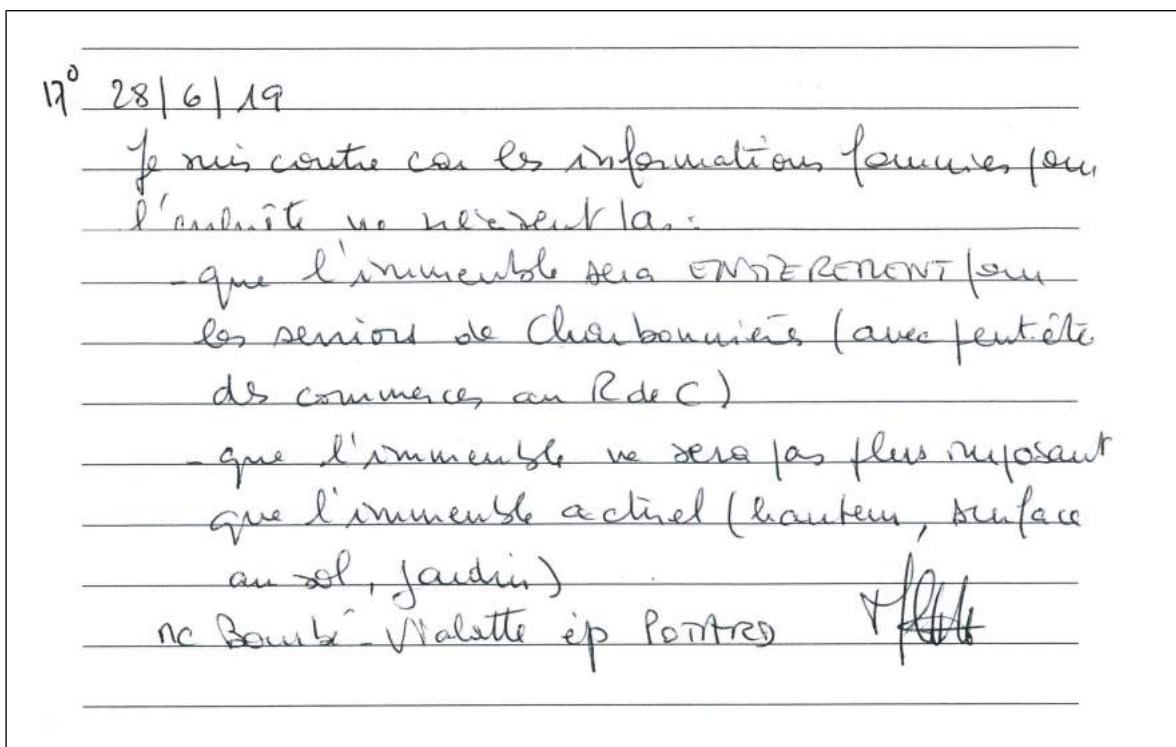 17° 28/6/19
Je suis contre car les informations fournies pour
l'enquête ne précisent pas :
- que l'immeuble sera ENTIEREMENT pour
les seniors de Charbonnières (avec peut être
des commerces au R de C)
- que l'immeuble ne sera pas plus imposant
que l'immeuble actuel (hauteur, surface
au sol, jardin)
ép POTARD